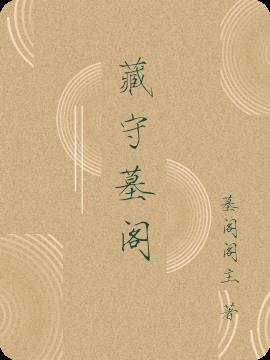 藏守墓阁
墓阁阁主 著